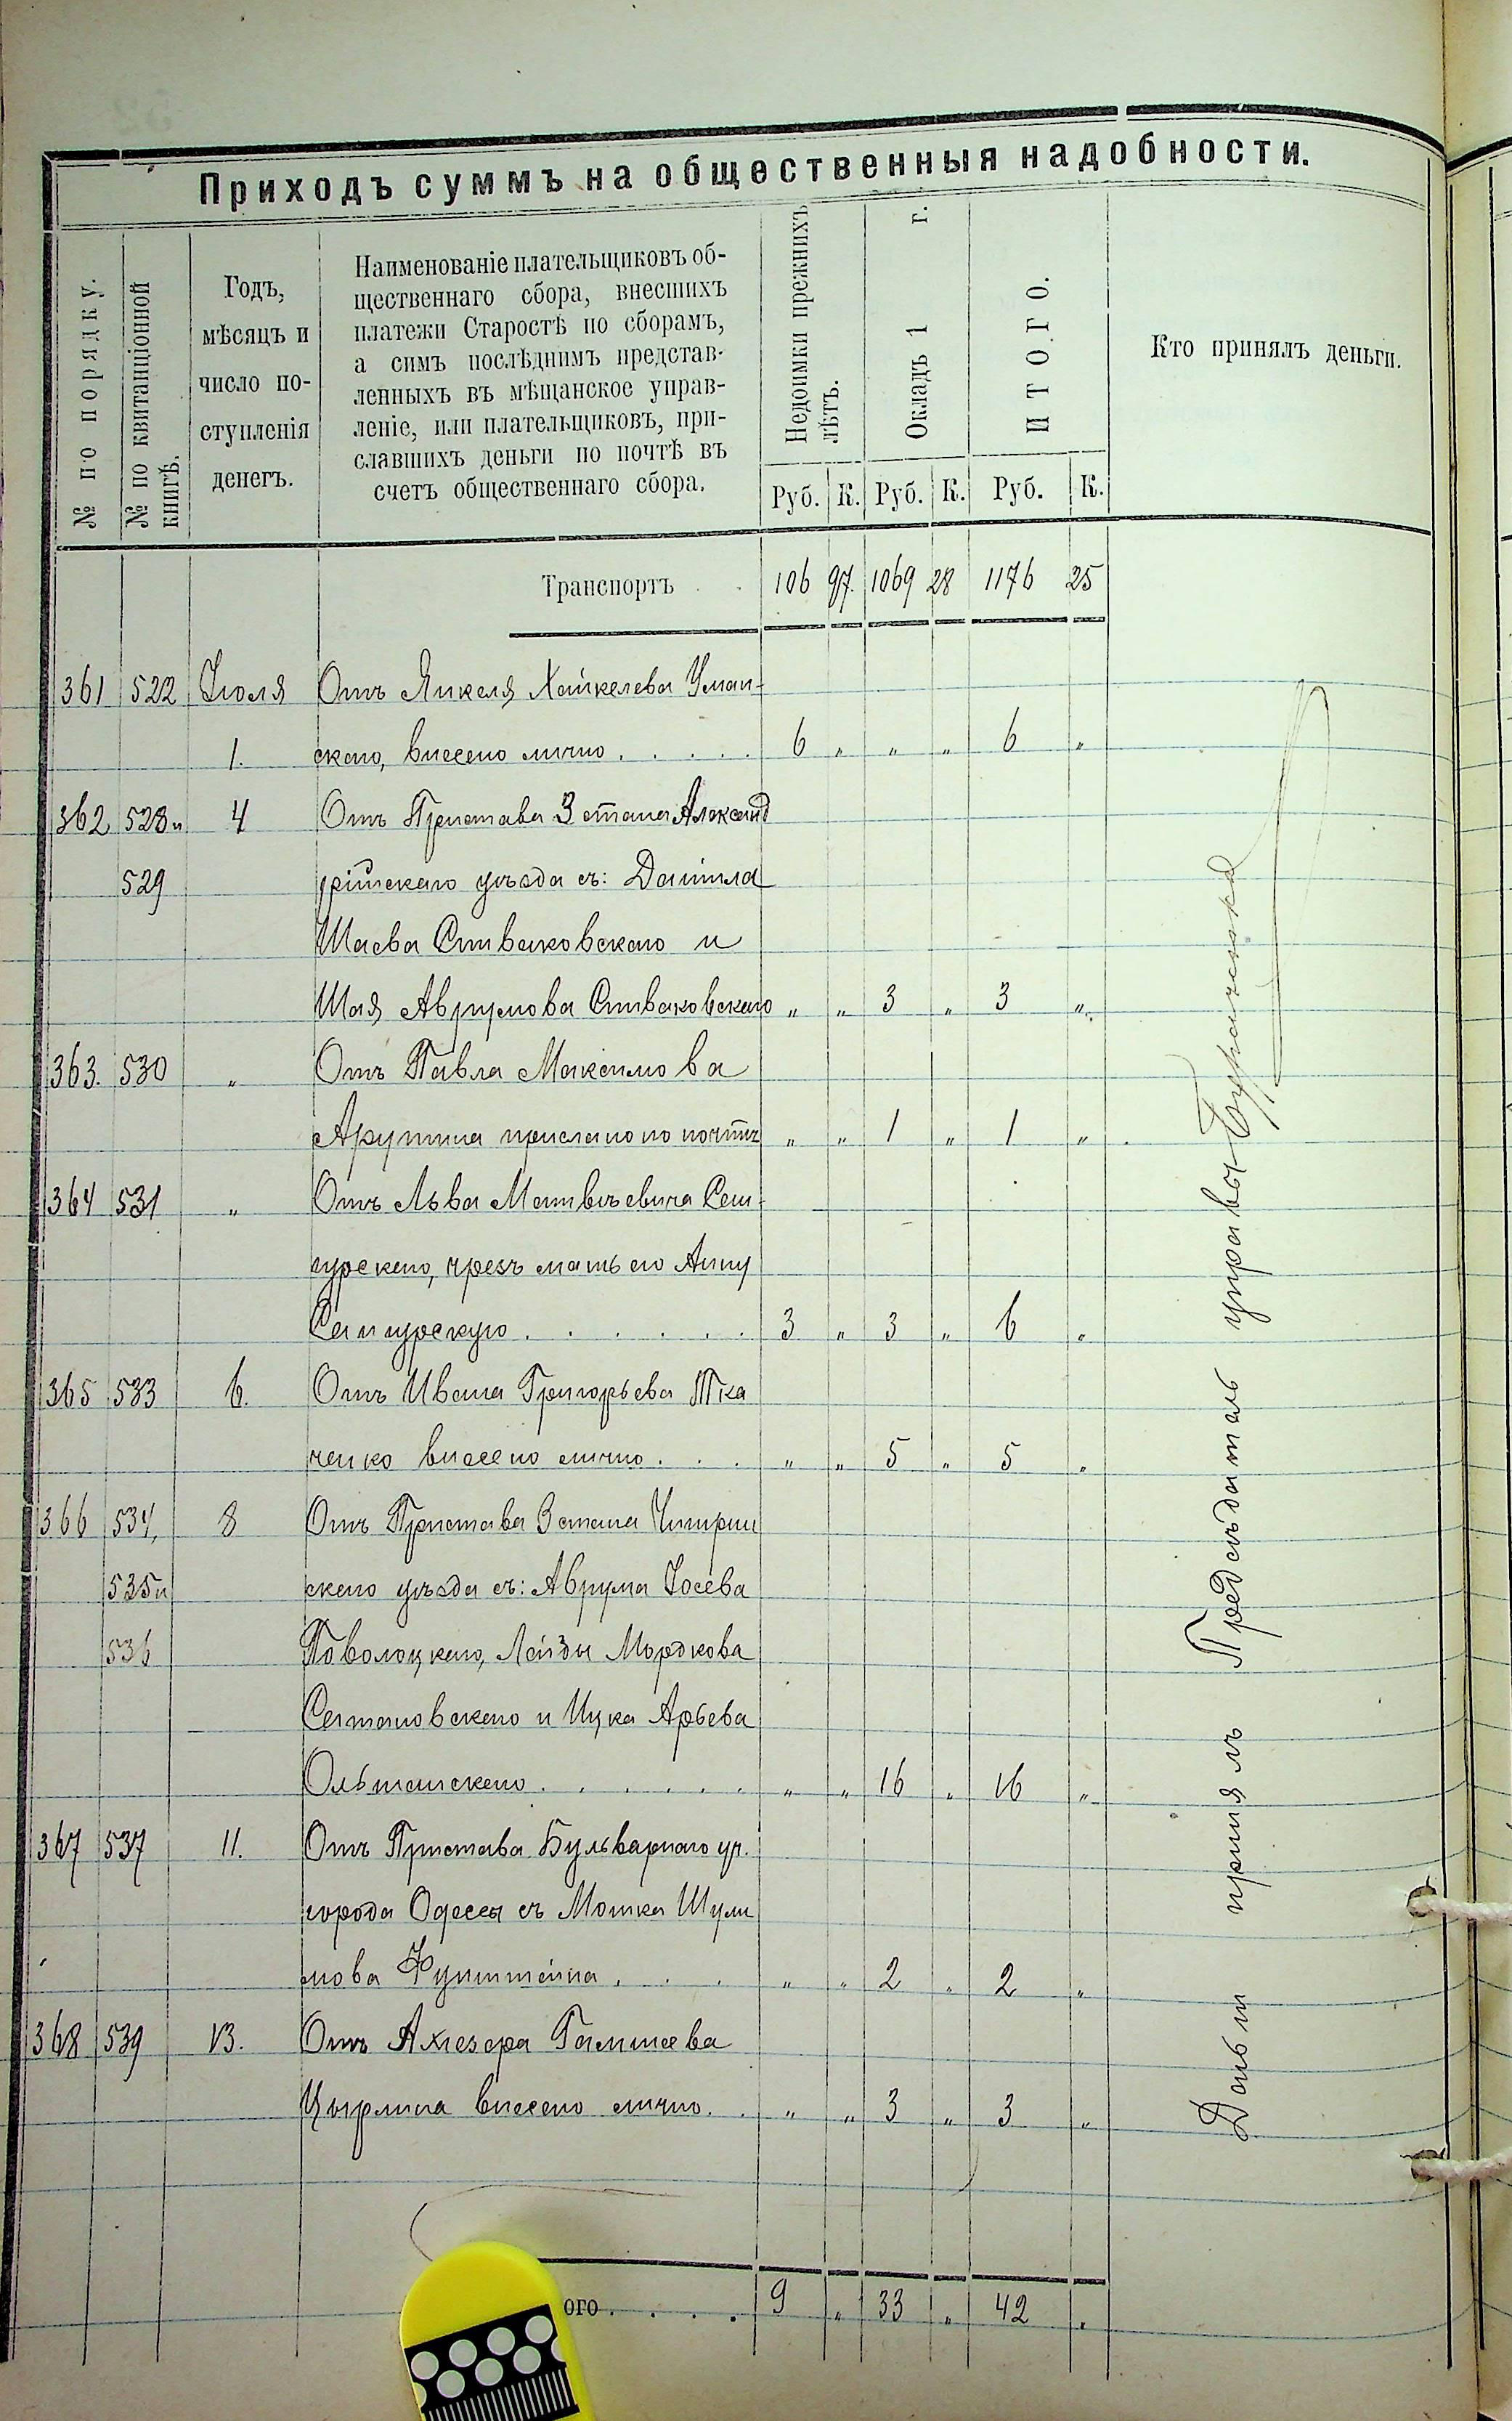 Приходъ суммъ на общественныя надобности.
№ по порядку.
№ по квитанціонной книгѣ.
Годъ,
мѣсяцъ и
число по-
ступленія
денегъ.
Наименованіе плательщиковъ об-
щественнаго сбора, внесшихъ
платежи Старостѣ по сборамъ,
а симъ послѣднимъ представ-
ленныхъ въ мѣщанское управ-
леніе, или плательщиковъ, при-
славшихъ деньги по почтѣ въ
счетъ общественнаго сбора.
Недоимки прежнихъ лѣтъ.
Окладъ 1 г.
ИТОГО.
Кто принялъ деньги.
Руб. К. Руб. К. Руб. К.
Транспортъ 106 97 1069 28 1176 25
361 522 Іюля Отъ Янкеля Хайкелева Уман-
1. скаго, внесено лично . . . . . 6 „ „ „ 6 „
362 528 и 4 Отъ Пристава 3 стана Александ
529 рійскаго уѣзда съ: Даніила
Шаева Спиваковскаго и
Шая Аврумова Спиваковскаго „ „ 3 „ 3 „
363. 530 „ Отъ Павла Максимова
Арутина прислано по почтѣ „ „ 1 „ 1 „
364 531 „ Отъ Льва Матвѣевича
чрезъ мать его Анну
3 „ 3 „ 6 „
365 533 6. Отъ Ивана Григорьева Тка
ченко внесено лично . . . „ „ 5 „ 5 „
366 534, 8 Отъ Пристава 3 стана Чигирин
535 и скаго уѣзда съ: Аврума Іосева
536 Поволоцкаго, Лейзы Мордкова
Сатановскаго и Ицка Арьева
Ольшанскаго . . . . . . . „ „ 16 „ 16 „
367 537 11. Отъ Пристава Бульварнаго уч.
города Одессы съ Мошка Шули
мова . . . „ „ 2 „ 2 „
368 539 13. Отъ
Цырлина внесено лично . . „ „ 3 „ 3 „
ого . . . . 9 „ 33 „ 42 „
Деньги принялъ Предсѣдатель управы